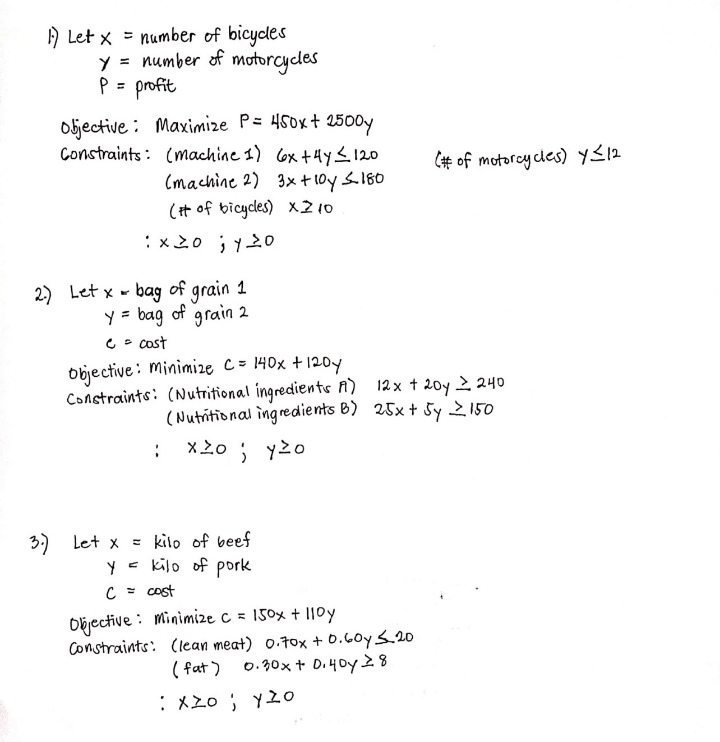 1.) Let x = number of bicycles
y = number of motorcycles
P = profit
Objective : Maximize P = 450x + 2500y
Constraints : (machine 1) 6x + 4y ≤ 120 (# of motorcycles) y ≤ 12
(machine 2) 3x + 10y ≤ 180
(# of bicycles) x ≥ 10
: x ≥ 0 ; y ≥ 0
2.) Let x = bag of grain 1
y = bag of grain 2
c = cost
Objective : Minimize C = 140x + 120y
Constraints : (Nutritional ingredients A) 12x + 20y ≥ 240
(Nutritional ingredients B) 25x + 5y ≥ 150
: x ≥ 0 ; y ≥ 0
3.) Let x = kilo of beef
y = kilo of pork
C = cost
Objective : Minimize C = 150x + 110y
Constraints : (lean meat) 0.70x + 0.60y ≤ 20
(fat) 0.30x + 0.40y ≥ 8
: x ≥ 0 ; y ≥ 0